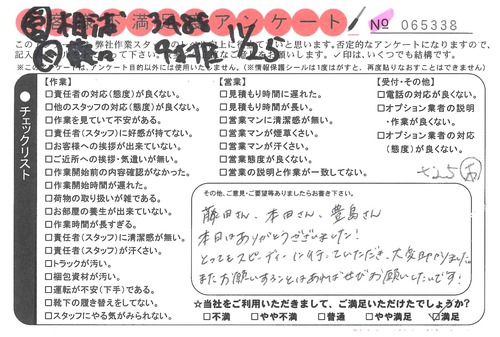 不満 アンケート
№ 065338
【作業】
□責任者の対応(態度)が良くない。
□他のスタッフの対応(態度)が良くない。
□作業を見ていて不安がある。
□責任者(スタッフ)に好感が持てない。
□お客様への挨拶が出来ていない。
□ご近所への挨拶・気遣いが無い。
□作業開始前の内容確認がなかった。
□作業開始時間が遅れた。
□荷物の取り扱いが雑である。
□お部屋の養生が出来ていない。
□作業時間が長すぎる。
□責任者(スタッフ)に清潔感が無い。
□責任者(スタッフ)が汗くさい。
□トラックが汚い。
□梱包資材が汚い。
□運転が不安(下手)である。
□靴下の履き替えをしてない。
□スタッフにやる気がみられない。
【営業】
□見積もり時間に遅れた。
□見積もり時間が長い。
□営業マンに清潔感が無い。
□営業マンが煙草くさい。
□営業マンが汗くさい。
□営業態度が良くない。
□営業の説明と作業が一致してない。
【受付・その他】
□電話の対応が良くない。
□オプション業者の説明
・作業が良くない。
□オプション業者の対応
(態度)が良くない。
● チェックリスト
その他、ご意見・ご要望等ありましたらお書き下さい。
藤田さん、本田さん、豊島さん
本日はありがとうございました!
とってもスピーディーに行っていただき、大変助かりました。
またお願いすることはあればぜひお願いしたいです!
☆当社をご利用いただきまして、ご満足いただけたでしょうか?
□不満 □やや不満 □普通 □やや満足 ☑満足